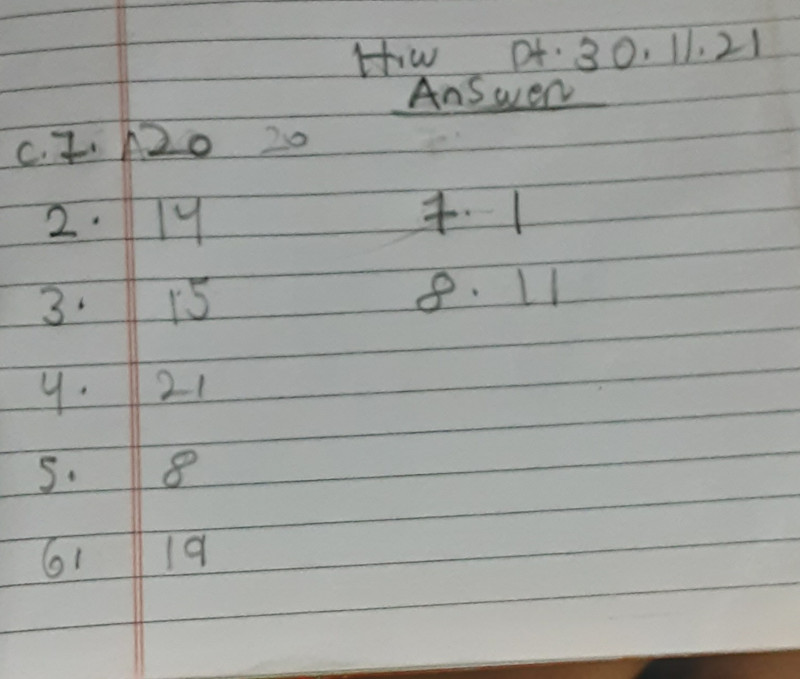 H.W Dt. 30.11.21
Answer
C. 1. 20 20
2. 14 7. 1
3. 15 8. 11
4. 21
5. 8
6. 19